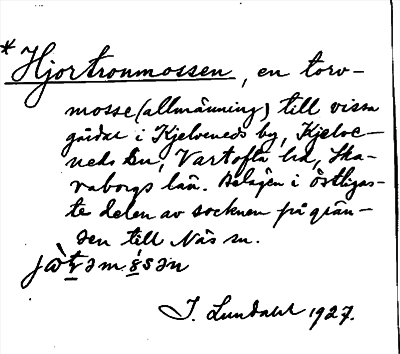 *Hjortronmossen, en torv-
mosse (allmänning) till vissa
gårdar i Kjelveneds by, Kjelve-
neds sn, Vartofta hd, Ska-
raborgs län. Belägen i östligas-
te delen av socknen på grän-
sen till Näs sn.
J. Lundahl 1927.